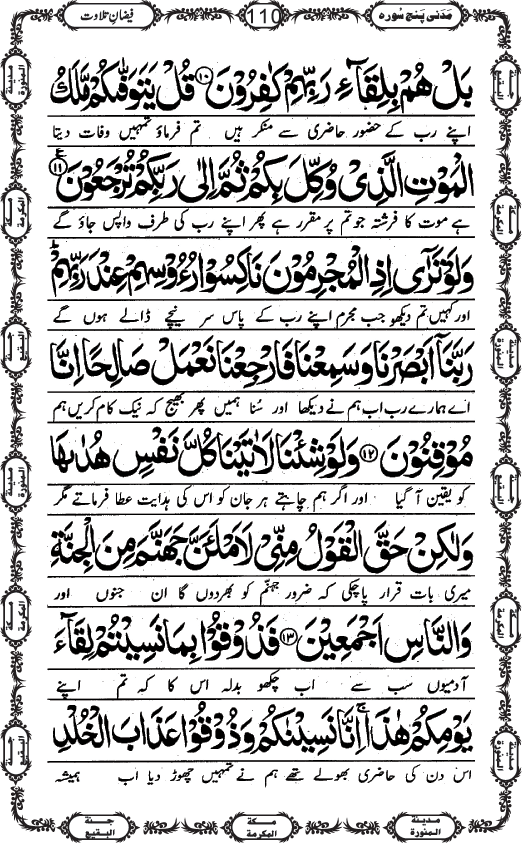 مَدَنی پَنج سُورہ
110
فیضانِ تلاوت
بَلْ هُمْ بِلِقَآئِ رَبِّهِمْ كٰفِرُوْنَ ﴿۱۰﴾ قُلْ يَتَوَفّٰىكُمْ مَّلَكُ
اپنے رب کے حضور حاضری سے منکر ہیں تم فرماؤ تمہیں وفات دیتا
الْمَوْتِ الَّذِيْ وُكِّلَ بِكُمْ ثُمَّ اِلٰى رَبِّكُمْ تُرْجَعُوْنَ ﴿۱۱﴾ ع
ہے موت کا فرشتہ جو تم پر مقرر ہے پھر اپنے رب کی طرف واپس جاؤ گے
وَلَوْ تَرٰٓى اِذِ الْمُجْرِمُوْنَ نَاكِسُوْا رُءُوْسِهِمْ عِنْدَ رَبِّهِمْ ؕ
اور کہیں تم دیکھو جب مجرم اپنے رب کے پاس سر نیچے ڈالے ہوں گے
رَبَّنَآ اَبْصَرْنَا وَسَمِعْنَا فَارْجِعْنَا نَعْمَلْ صَالِحًا اِنَّا
اے ہمارے رب اب ہم نے دیکھا اور سُنا ہمیں پھر بھیج کہ نیک کام کریں ہم
مُوْقِنُوْنَ ﴿۱۲﴾ وَلَوْ شِئْنَا لَاٰتَيْنَا كُلَّ نَفْسٍ هُدٰىهَا
کو یقین آ گیا اور اگر ہم چاہتے ہر جان کو اس کی ہدایت عطا فرماتے مگر
وَلٰكِنْ حَقَّ الْقَوْلُ مِنِّيْ لَاَمْلَئَنَّ جَهَنَّمَ مِنَ الْجِنَّةِ
میری بات قرار پا چکی کہ ضرور جہنّم کو بھر دوں گا ان جنوں اور
وَالنَّاسِ اَجْمَعِيْنَ ﴿۱۳﴾ فَذُوْقُوْا بِمَا نَسِيْتُمْ لِقَآءَ
آدمیوں سب سے اب چکھو بدلہ اس کا کہ تم اپنے
يَوْمِكُمْ هٰذَا ۚ اِنَّا نَسِيْنٰكُمْ وَذُوْقُوْا عَذَابَ الْخُلْدِ
اس دن کی حاضری بھولے تھے ہم نے تمہیں چھوڑ دیا اب ہمیشہ
مدینۃ المنورۃ
مکۃ المکرمۃ
جنۃ البقیع
مدینۃ المنورۃ
مکۃ المکرمۃ
جنۃ البقیع
جنۃ البقیع
مکۃ المکرمۃ
مدینۃ المنورۃ
جنۃ البقیع
مکۃ المکرمۃ
مدینۃ المنورۃ
مدینۃ المنورۃ
مکۃ المکرمۃ
جنۃ البقیع